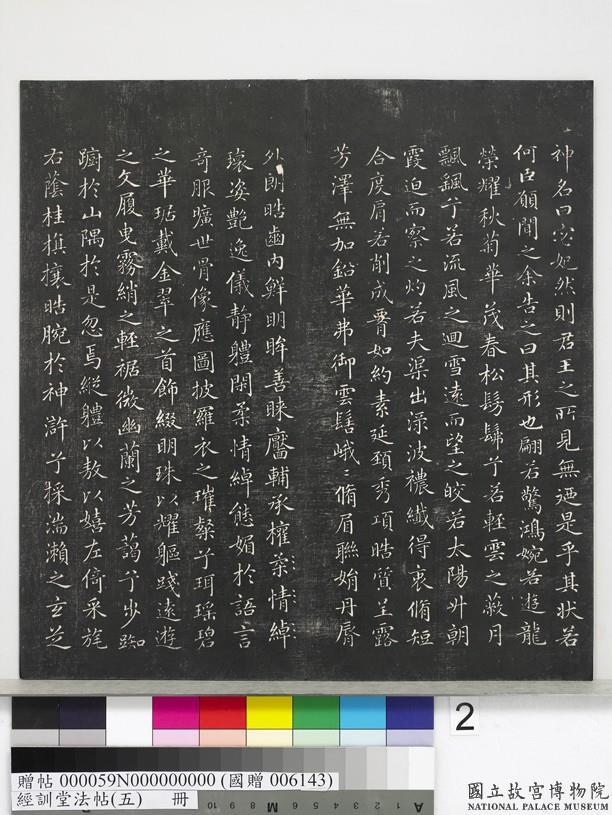 神名曰宓妃然則君王之所見無迺是乎其狀若
何臣願聞之余告之曰其形也翩若驚鴻婉若遊龍
榮耀秋菊華茂春松髣髴兮若輕雲之蔽月
飄颻兮若流風之迴雪遠而望之皎若太陽升朝
霞迫而察之灼若夫渠出淥波襛纖得衷脩短
合度肩若削成腰如約素延頸秀項皓質呈露
芳澤無加鉛華弗御雲髻峨〻脩眉聯娟丹脣
外朗皓齒內鮮明眸善睞靨輔承權柔情綽
瓌姿艷逸儀靜軆閑柔情綽態媚於語言
奇服曠世骨像應圖披羅衣之璀粲兮珥瑤碧
之華琚戴金翠之首飾綴明珠以耀軀踐遠遊
之文履曳霧綃之輕裾微幽蘭之芳藹兮步踟
躕於山隅於是忽焉縱軆以敖以嬉左倚采旄
右蔭桂旗攘皓腕於神滸兮採湍瀨之玄芝
2
贈帖 000059N000000000 (國贈 006143)
經訓堂法帖(五) 冊
國立故宮博物院
NATIONAL PALACE MUSEUM